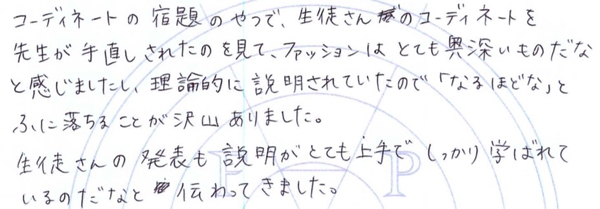 コーディネートの宿題のやつで、生徒さんのコーディネートを
先生が手直しされたのを見て、ファッションはとても奥深いものだな
と感じましたし、理論的に説明されていたので「なるほどな」と
ふに落ちることが沢山ありました。
生徒さんの発表も説明がとても上手でしっかり学ばれて
いるのだなと伝わってきました。
F P